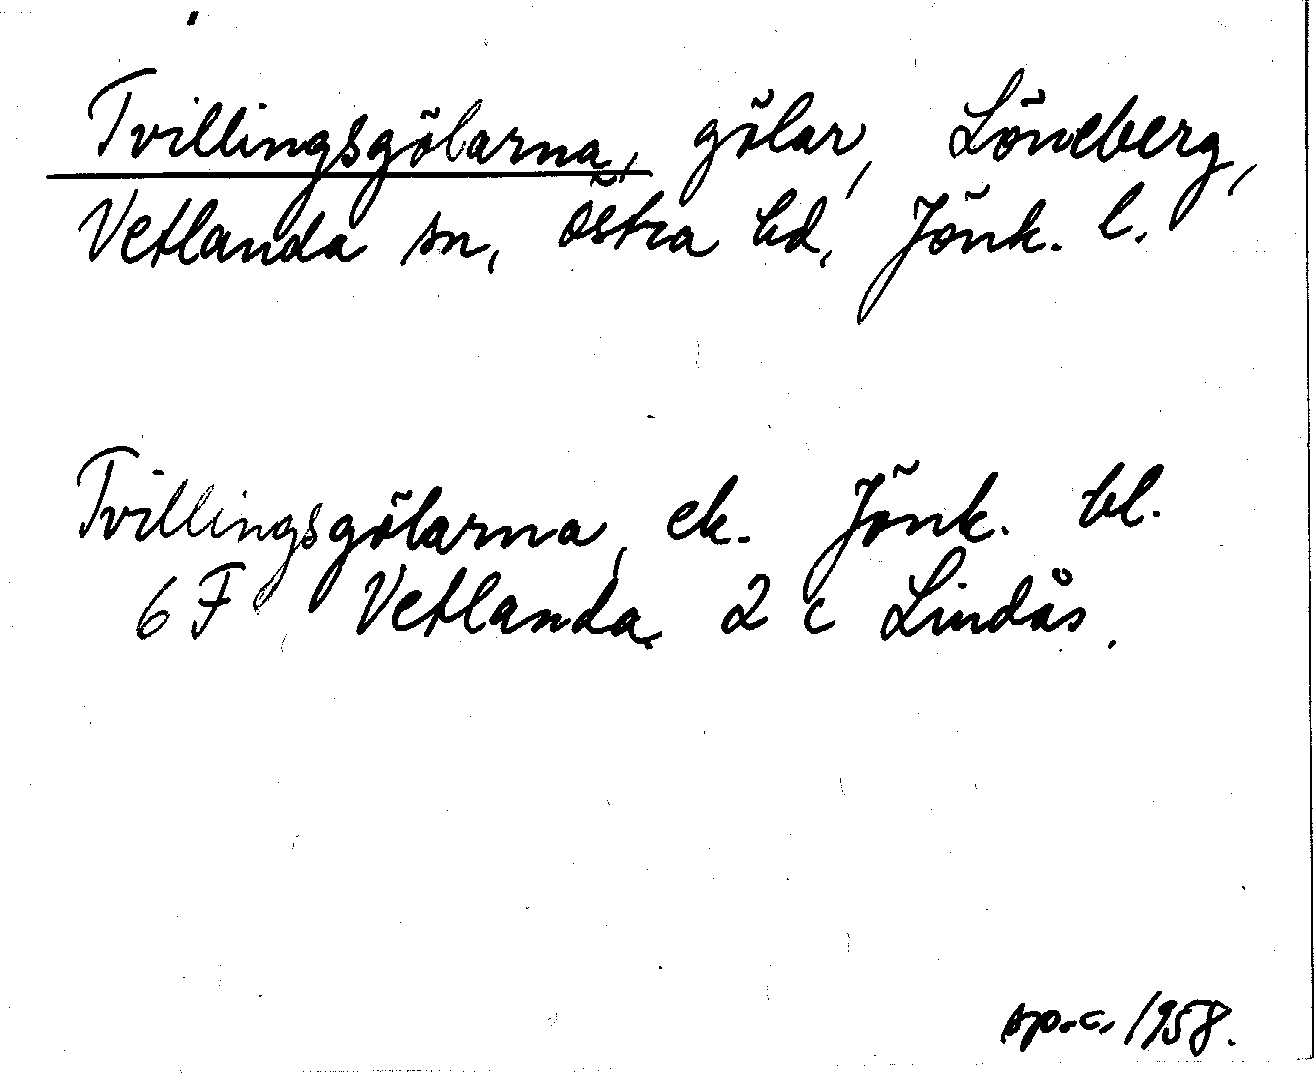 Tvillingsgölarna, gölar, Löneberg,
Vetlanda sn, Östra hd, Jönk. l.
Tvillingsgölarna, ek. Jönk. bl.
6 F Vetlanda 2 c Lindås.
sp.c. 1958.